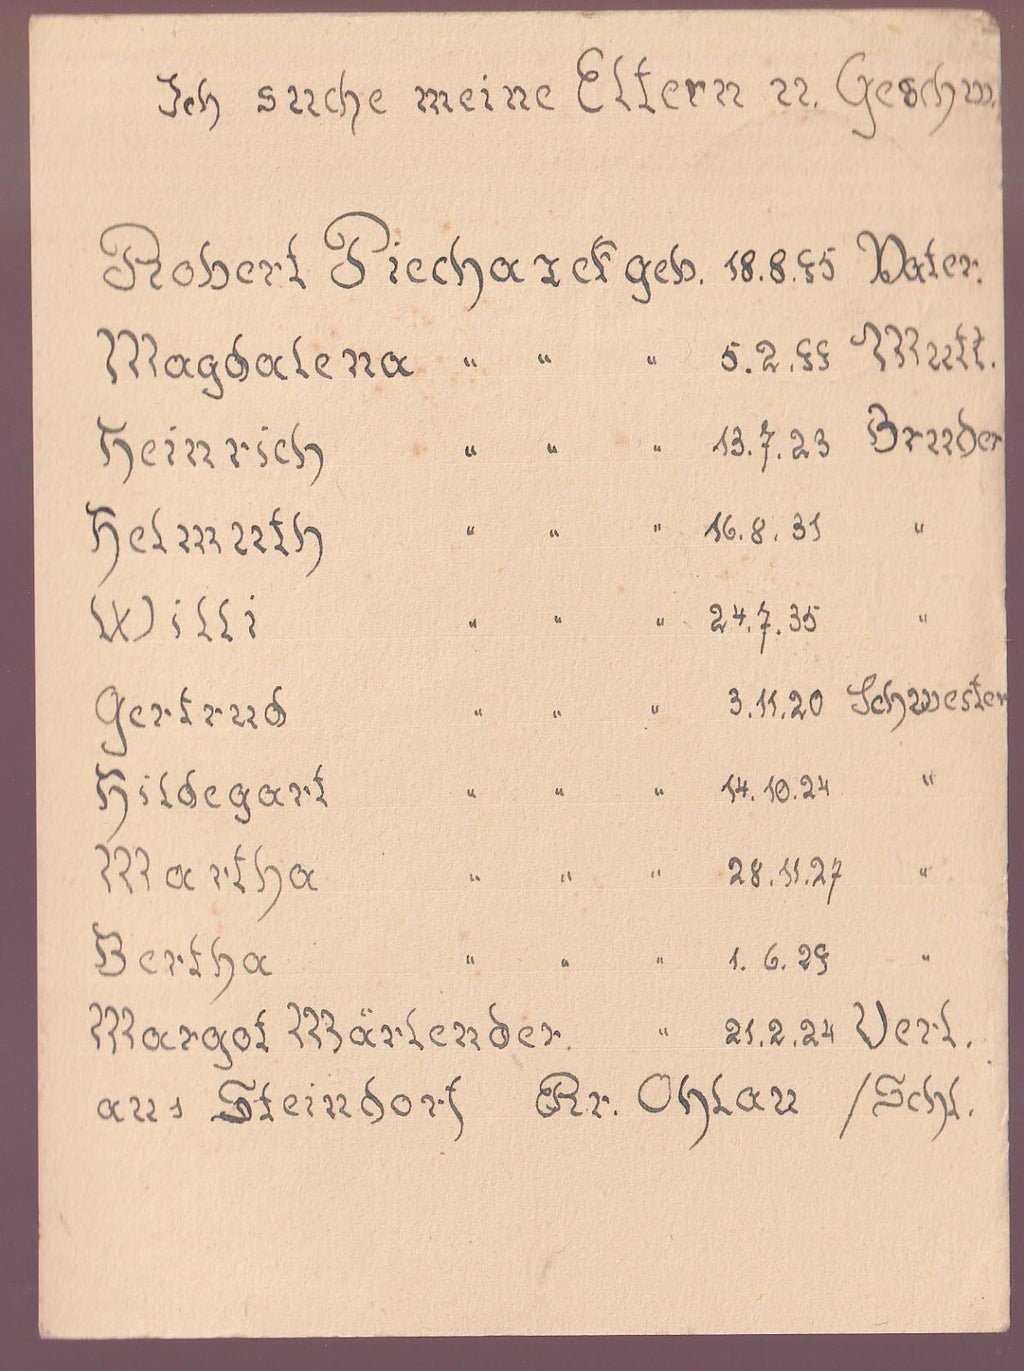 Ich suche meine Eltern u. Geschw.
Robert Piecharzek geb. 18.8.95 Vater.
Magdalena " " " 5.2.99 Mutt.
Heinrich " " " 13.7.23 Bruder
Helmuth " " " 16.8.31 "
Willi " " " 24.7.35 "
Gertrud " " " 3.11.20 Schwester
Hildegart " " " 14.10.24 "
Martha " " " 28.11.27 "
Bertha " " " 1.6.29 "
Margot Märlender. " 21.2.24 Verl.
aus Steindorf Kr. Ohlau /Schl.